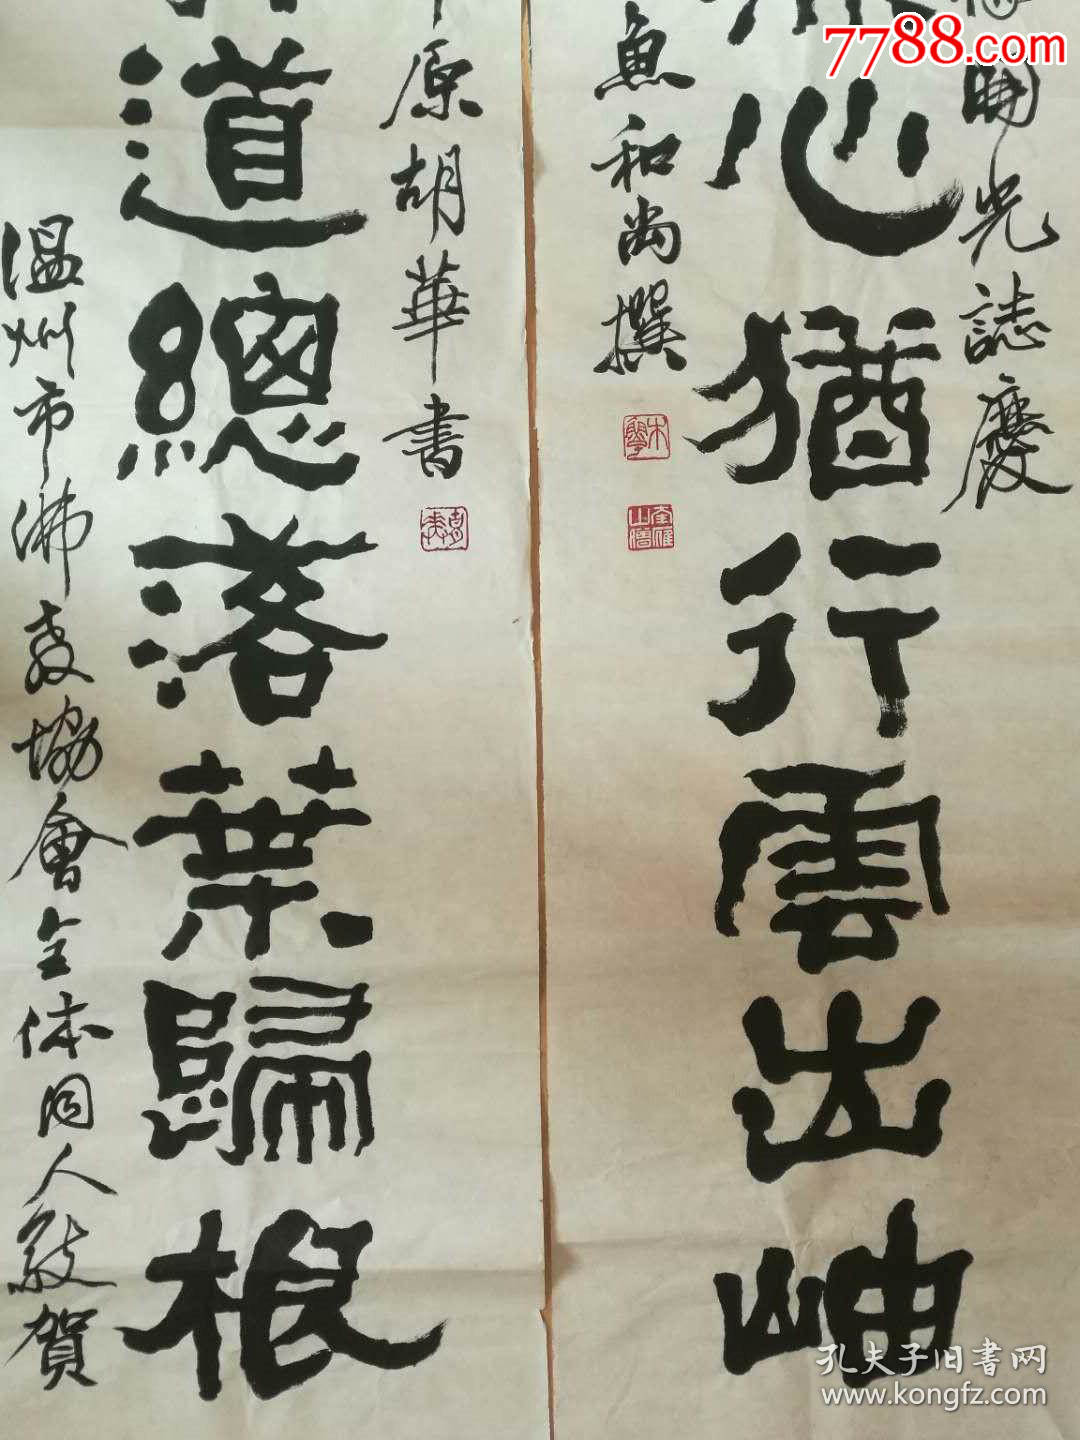 7788.com
開光誌慶
心猶行雲出岫
魚和尚撰
原胡華書
道總落葉歸根
温州市佛教協會全体同人敬賀
孔夫子旧書网
www.kongfz.com